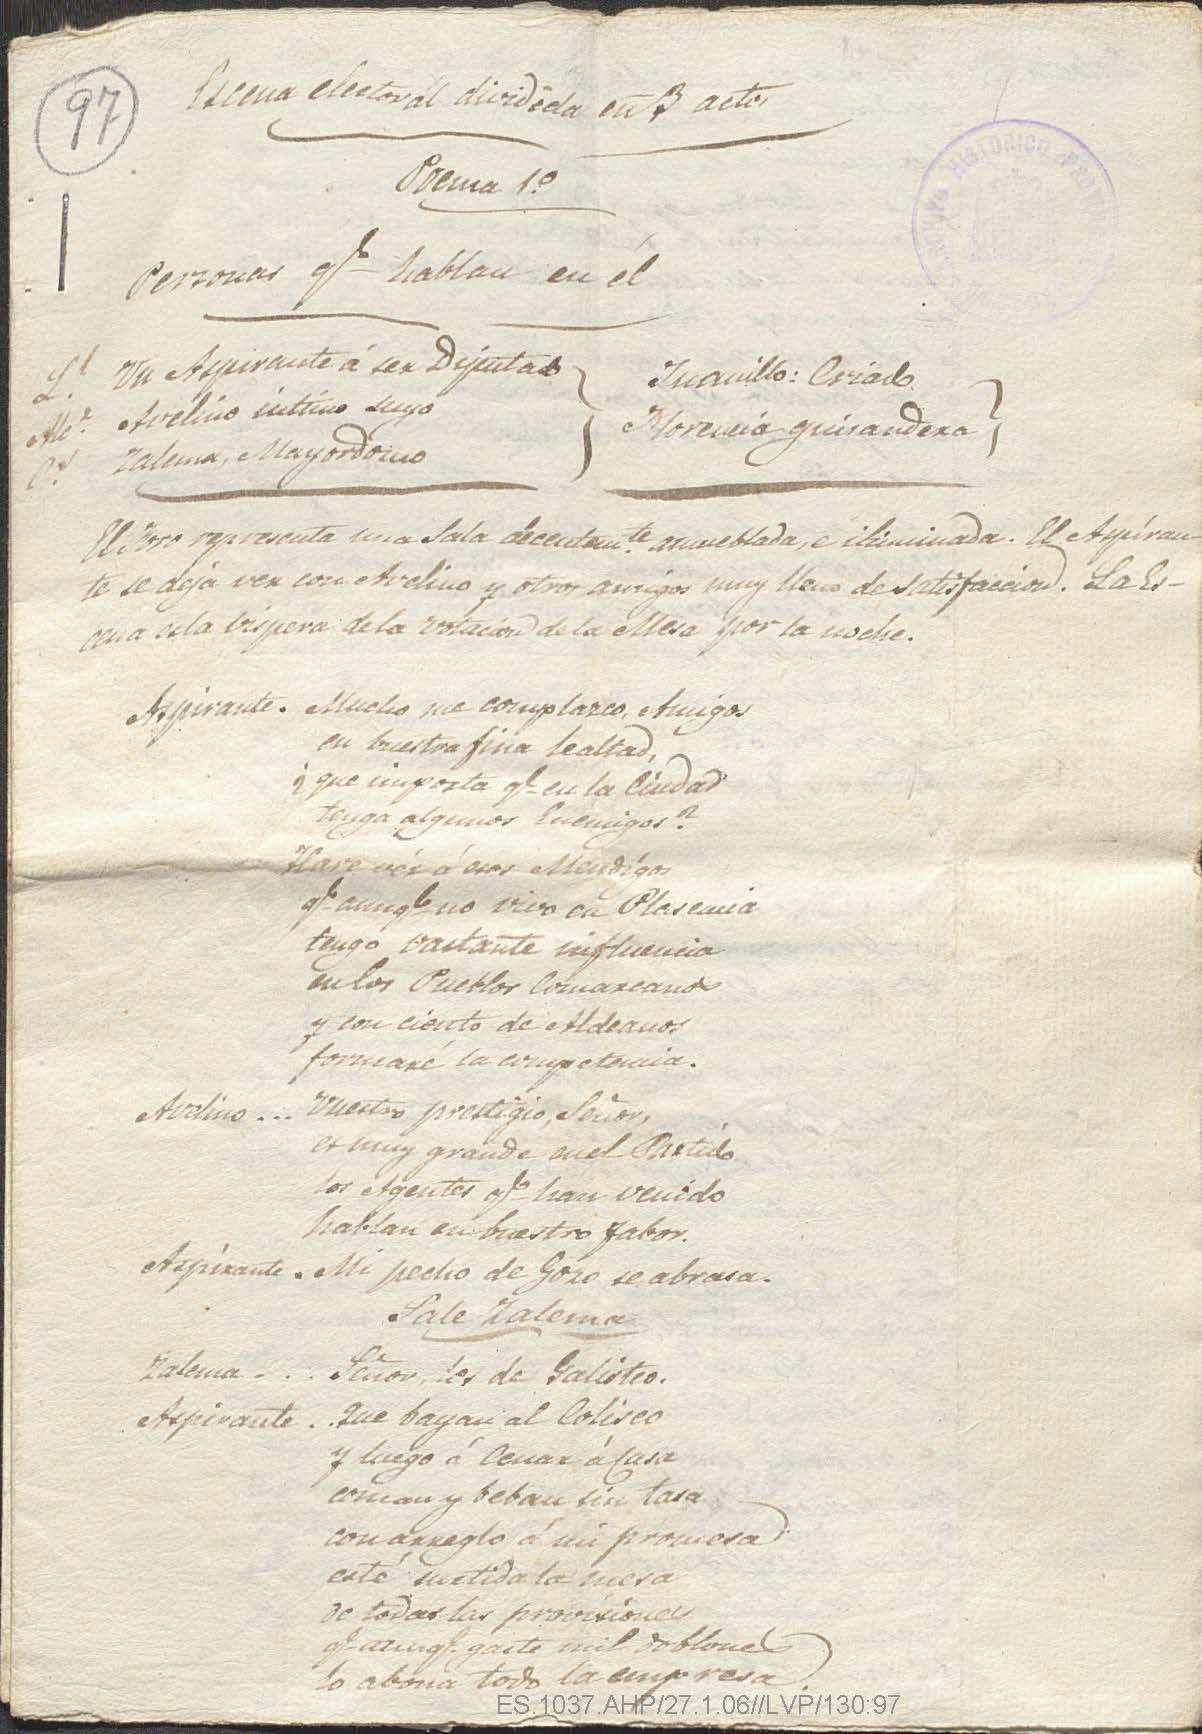 97
Escena electoral dividida en 3 actos
Poema 1.º
Personas q.e hablan en él
L.d Un Aspirante á ser Diputado
Al.e Avelino intimo suyo
C.s Zalema, Mayordomo
Juanillo: Criado
Florencia guisandera
El Foro representa una Sala decentem.te amueblada, e iluminada. El Aspiran-
te se deja ver con Avelino y otros amigos muy lleno de satisfaccion. La Es-
cena es la bispera de la votacion de la Mesa por la noche.
Aspirante. Mucho me complazco, Amigos
en buestra fina lealtad,
¿que importa q.e en la Ciudad
tenga algunos Enemigos?
Hare vér á esos Mendigos
q.e aunq.e no vivo en Plasencia
tengo vastante influencia
en los Pueblos Comarcanos
y con ciento de Aldeanos
formaré la competencia.
Avelino ... Vuestro prestigio, Señor,
es muy grande en el Partido
los Agentes q.e han venido
hablan en buestro fabor.
Aspirante. Mi pecho de Gozo se abrasa.
Sale Zalema
Zalema - . . Señor, los de Galisteo.
Aspirante . . Que bayan al Coliseo
y luego á Cenar á Casa
coman y beban sin tasa
con arreglo á mi promesa
esté surtida la mesa
de todas las provisiones
q.e aunq.e gaste mil doblones
lo abona todo la empresa.
ARCHIVO HISTORICO PROVIN
ES.1037.AHP/27.1.06//LVP/130:97